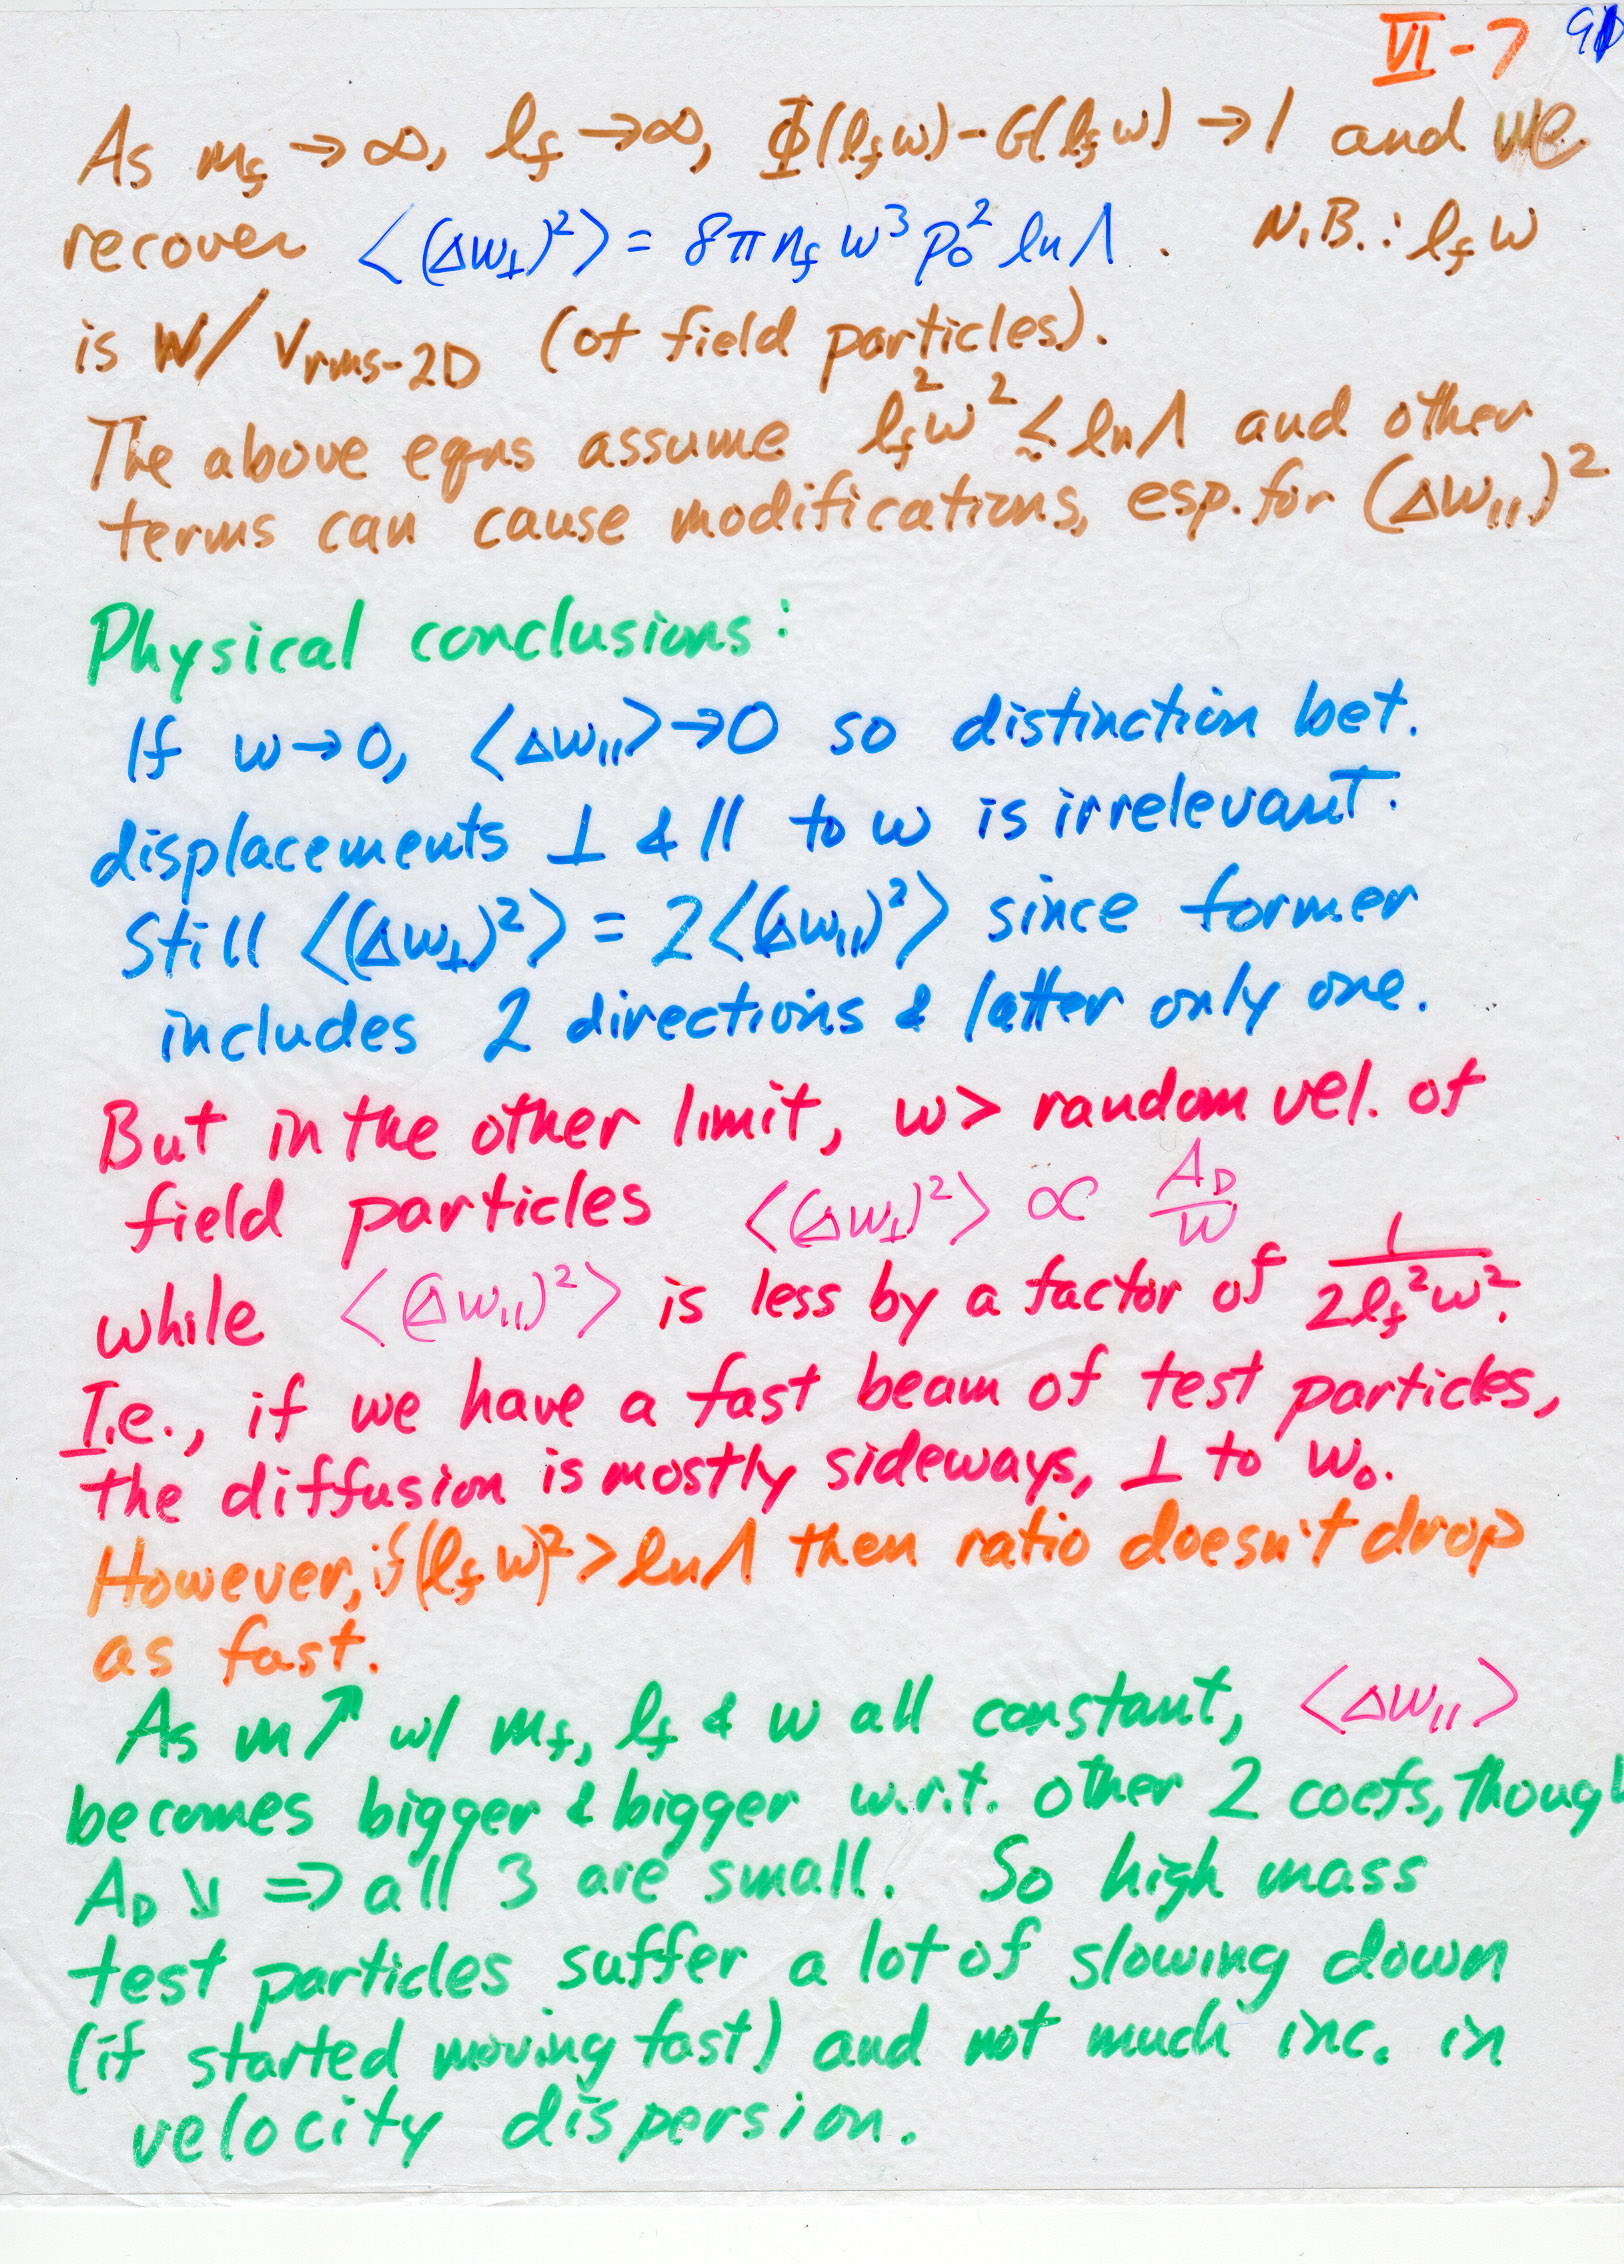 VI-7
As m_f → ∞, l_f → ∞, Φ(l_f w) - G(l_f w) → 1 and we
recover ⟨(Δw_⊥)²⟩ = 8π n_f w³ p_o² ln Λ . N.B.: l_f w
is w/v_rms-2D (of field particles).
The above eqns assume l_f² w² ≲ ln Λ and other
terms can cause modifications, esp. for (Δw_||)²
Physical conclusions:
If w→0, ⟨Δw_||⟩→0 so distinction bet.
displacements ⊥ & || to w is irrelevant.
Still ⟨(Δw_⊥)²⟩ = 2⟨(Δw_||)²⟩ since former
includes 2 directions & latter only one.
But in the other limit, w > random vel. of
field particles ⟨(Δw_⊥)²⟩ ∝ A_D/w
while ⟨(Δw_||)²⟩ is less by a factor of 1/(2l_f²w²).
I.e., if we have a fast beam of test particles,
the diffusion is mostly sideways, ⊥ to w_o.
However, if (l_f w)² > ln Λ then ratio doesn't drop
as fast.
As m↗ w/ m_f, l_f & w all constant, ⟨Δw_||⟩
becomes bigger & bigger w.r.t. other 2 coefs, though
A_D ↘ ⇒ all 3 are small. So high mass
test particles suffer a lot of slowing down
(if started moving fast) and not much inc. in
velocity dispersion.